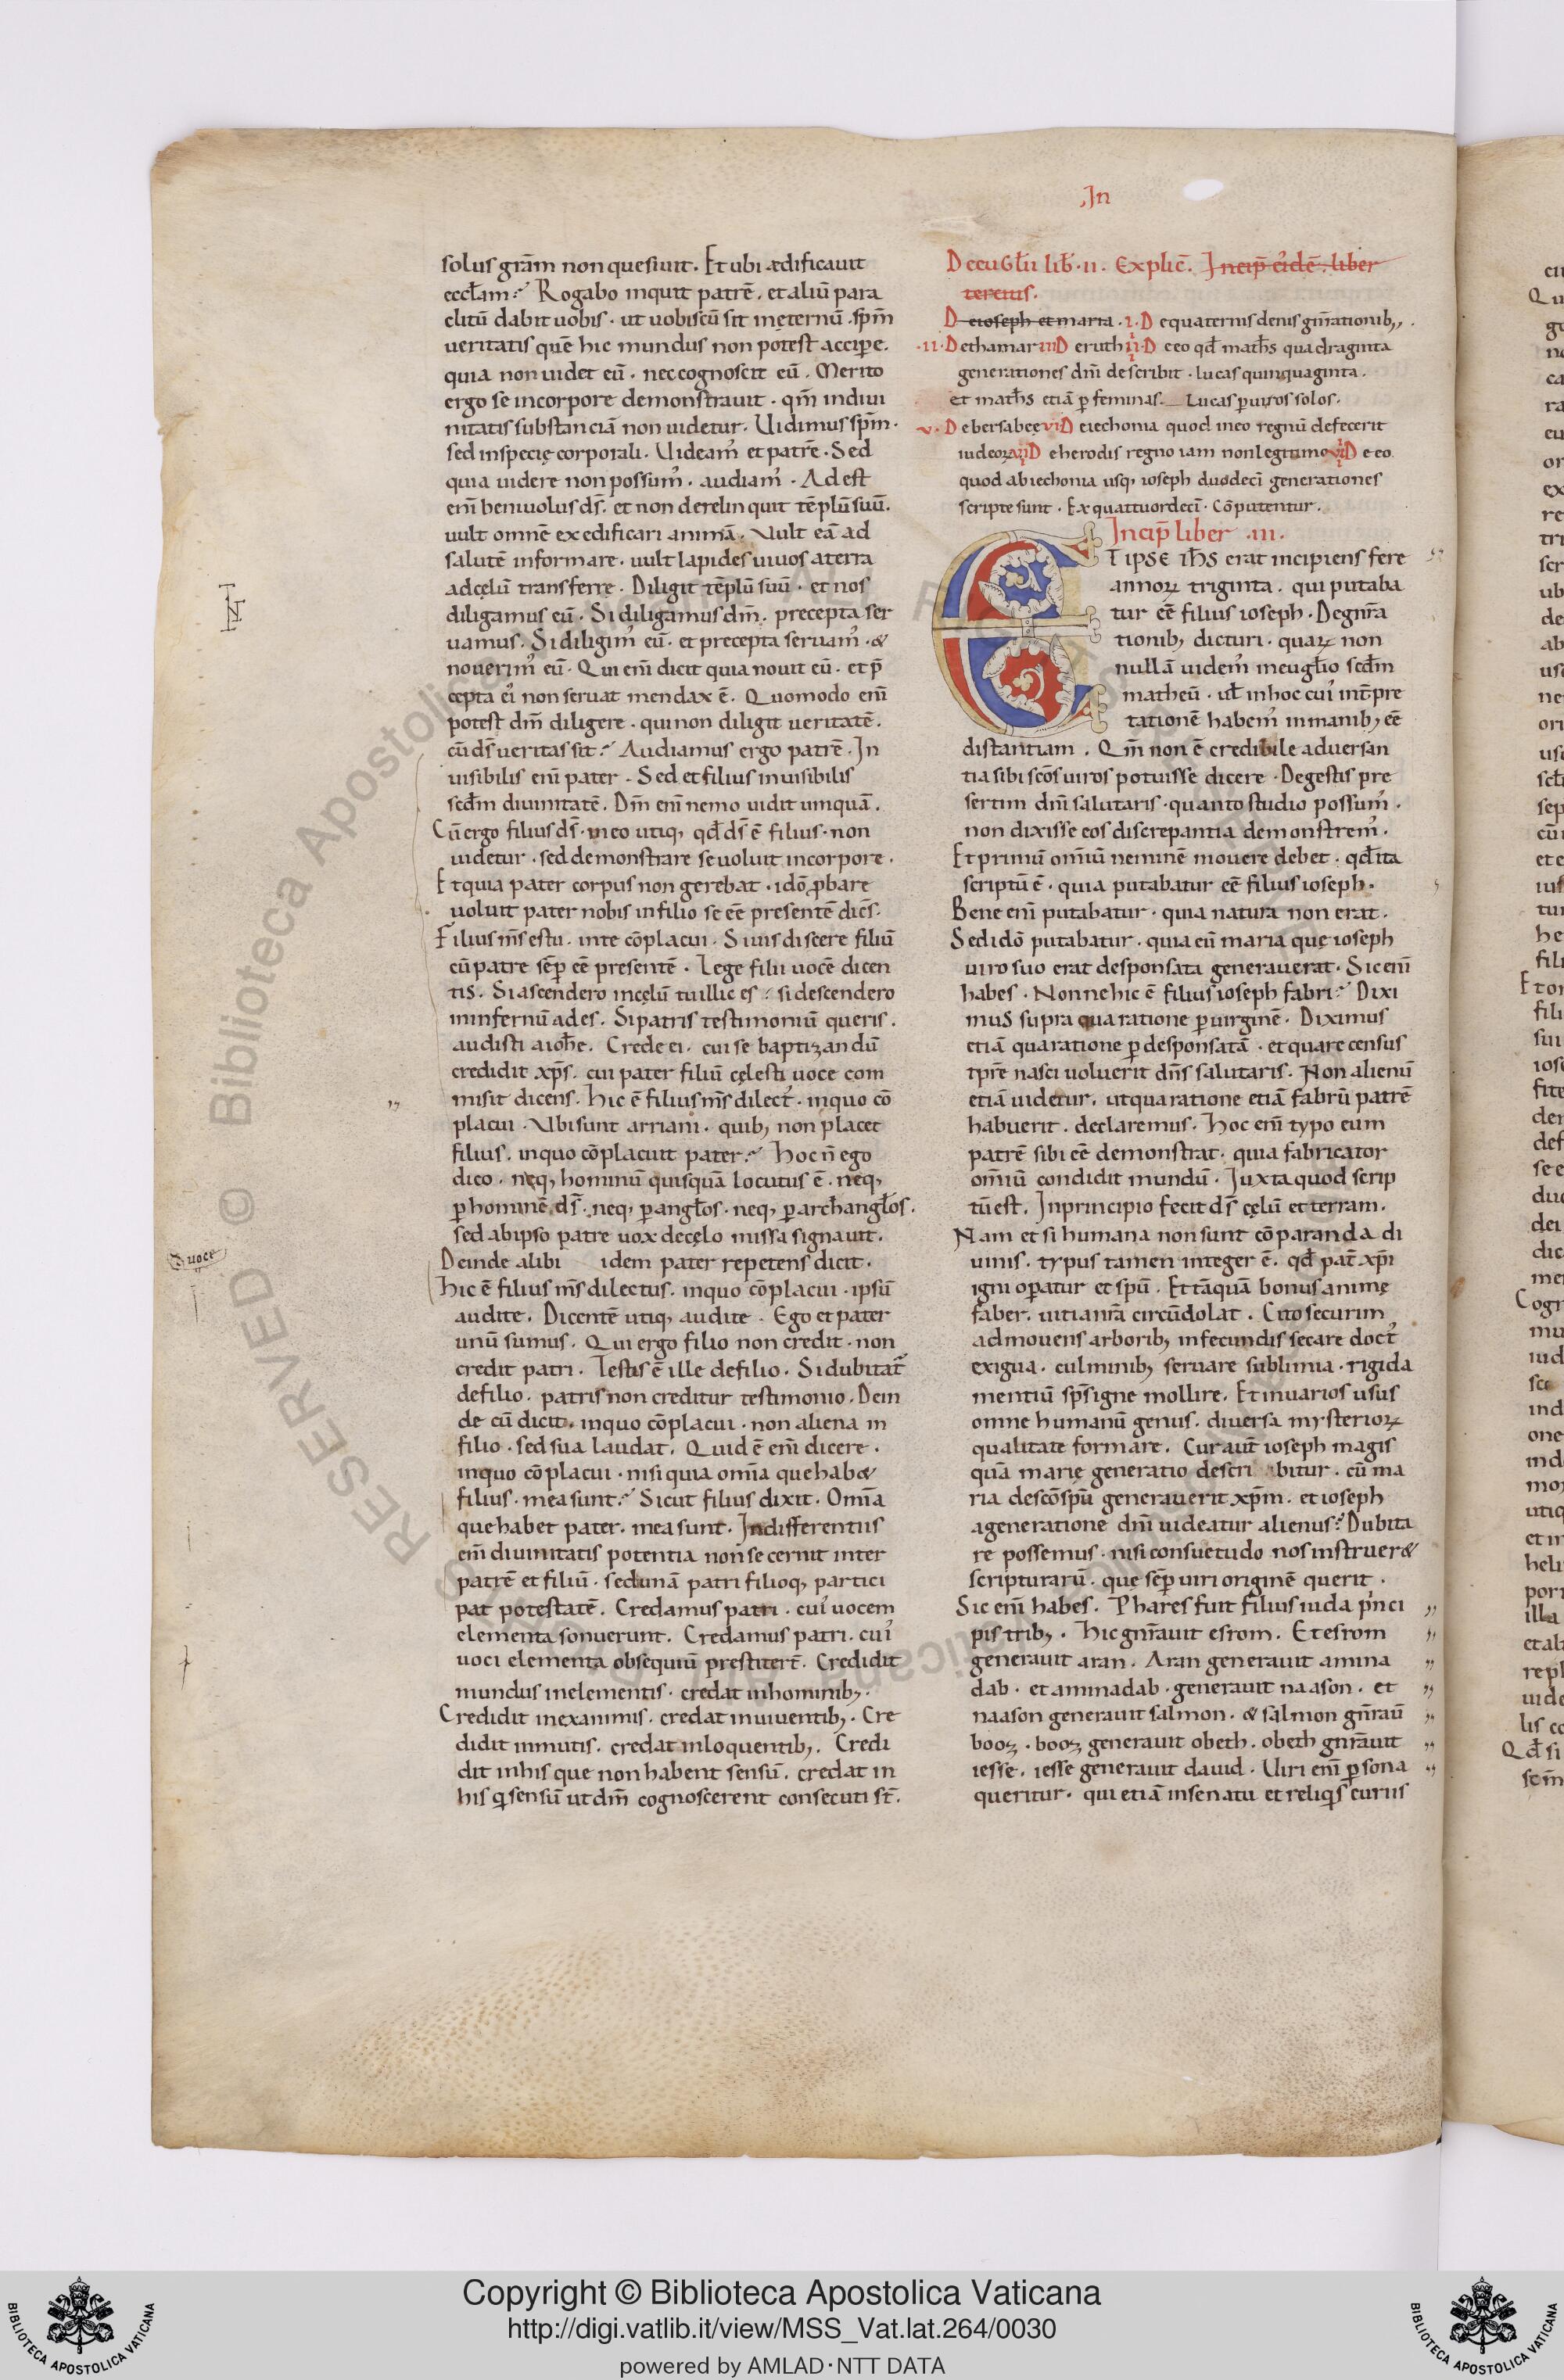 ,In
solus grãm non quesiuit. Et ubi ædificauit
eccłam? Rogabo inquit patrẽ. et aliũ para
clitũ dabit uobis. ut uobiscũ sit in ęternũ. sp̃m
veritatis quẽ hic mundus non potest accipere.
quia non uidet eũ. nec cognoscit eũ. Merito
ergo se in corpore demonstrauit. qm̃ in diui
nitatis substanciã non uidetur. Uidimus sp̃m.
sed in specię corporali. Uideam᷒ et patrẽ. Sed
quia uidere non possum᷒. audiam᷒. Adest
eni᷒ beniuolus ds̃. et non derelinquit tẽplũ suũ.
uult omnẽ ex edificari animã. Vult eã ad
salutẽ informare. uult lapides uiuos a terra
ad cęlũ transferre. Diligit tẽplũ suũ. et nos
diligamus eũ. Si diligamus dm̃. precepta ser
uamus. Si diligim᷒ eũ. et precepta seruam᷒. &
nouerim᷒ eũ. Qui enĩ dicit quia nouit eũ. et p̃
cepta ei᷒ non seruat mendax ẽ. Quomodo enĩ
potest dm̃ diligere. qui non diligit ueritatẽ.
cũ ds̃ ueritas sit? Audiamus ergo patrẽ. In
uisibilis enĩ pater. Sed et filius inuisibilis
scđm diuinitatẽ. Dm̃ enĩ nemo uidit umquã.
Cũ ergo filius ds̃. in eo utiq; qđ ds̃ ẽ filius. non
uidetur. sed demonstrare se uoluit in corpore.
Et quia pater corpus non gerebat. idõ ꝓbare
uoluit pater nobis in filio se eẽ presentẽ dicẽs.
Filius ms̃ es tu. in te cõplacui. Si uis discere filiũ
cũ patre sẽp eẽ presentẽ. Lege filii uocẽ dicen
tis. Si ascendero in cęlũ tu illic es. si descendero
in infernũ ades. Si patris testimoniũ queris.
audisti a ioħe. Crede ei. cui se baptizandũ
credidit xp̃s. cui pater filiũ cęlesti uoce com
misit dicens. Hic ẽ filius ms̃ dilect᷒. in quo cõ
placui. Vbi sunt arriani. quib; non placet
filius. in quo cõplacuit pater? Hoc ñ ego
dico. neq; hominũ quisquã locutus ẽ. neq;
ꝑ hominẽ ds̃. neq; ꝑ angłos. neq; ꝑ archangłos.
sed ab ipso patre uox de cęlo missa signauit.
Deinde alibi idem pater repetens dicit.
Hic ẽ filius ms̃ dilectus. in quo cõplacui. ipsũ
audite. Dicentẽ utiq; audite. Ego et pater
unũ sumus. Qui ergo filio non credit. non
credit patri. Testis ẽ ille de filio. Si dubitat᷒
de filio. patris non creditur testimonio. Dein
de cũ dicit. in quo cõplacui. non aliena in
filio. sed sua laudat. Quid ẽ enĩ dicere.
in quo cõplacui. nisi quia omĩa que hab&
filius. mea sunt? Sicut filius dixit. Omĩa
que habet pater. mea sunt. Indifferentiis
enĩ diuinitatis potentia non se cernit inter
patrẽ et filiũ. sed unã patri filioq; partici
pat potestatẽ. Credamus patri. cui᷒ uocem
elementa sonuerunt. Credamus patri. cui᷒
uoci elementa obsequiũ prestiter̃t. Credidit
mundus in elementis. credat in hominib;.
Credidit in exanimis. credat in uiuentib;. Cre
didit in mutis. credat in loquentib;. Credi
dit in his que non habent sensũ. credat in
his q̃ sensũ ut dm̃ cognoscerent consecuti st̃.
uoce
De eugłii lib̃. ii. Explic̃. Incip̃ ei᷒dẽ. liber
tercius.
De ioseph et maria. i. De quaternis denis gñrationib;.
.ii. De thamar iii De ruth iiii. De eo qđ matħs quadraginta
generationes dnĩ describit. lucas quinquaginta.
et matħs etiã ꝑ feminas. Lucas ꝑ uiros solos.
v. De bersabee vi De iechonia quod in eo regnũ defecerit
iudeoꝝ vii De herodis regno iam non legitimo viii De eo
quod ab iechonia usq; ioseph duodecĩ generationes
scripte sunt. Ex quattuordecĩ. Cõputentur.
Incip̃ liber .iii.
ET IPSE IħS erat incipiens fere
annoꝝ triginta. qui putaba
tur eẽ filius ioseph. De gñra
tionib; dicturi. quaꝝ non
nullã uidem᷒ in eugłio scđm
matheũ. uł in hoc cui᷒ int̃pre
tationẽ habem᷒ in manib; eẽ
distantiam. Qm̃ non ẽ credibile aduersan
tia sibi scõs uiros potuisse dicere. De gestis pre
sertim dnĩ salutaris. quanto studio possum᷒.
non dixisse eos discrepantia demonstrem᷒.
Et primũ omĩũ neminẽ mouere debet. qđ ita
scriptũ ẽ. quia putabatur eẽ filius ioseph.
Bene enĩ putabatur. quia natura non erat.
Sed idõ putabatur. quia eũ maria quę ioseph
uiro suo erat desponsata generauerat. Sic enĩ
habes. Nonne hic ẽ filius ioseph fabri? Dixi
mus supra qua ratione ꝑ uirginẽ. Diximus
etiã qua ratione ꝑ desponsatã. et quare census
tp̃re nasci uoluerit dñs salutaris. Non alienũ
etiã uidetur. ut qua ratione etiã fabrũ patrẽ
habuerit. declaremus. Hoc enĩ typo eum
patrẽ sibi eẽ demonstrat. quia fabricator
omĩũ condidit mundũ. Juxta quod scrip
tũ est. In principio fecit ds̃ cęlũ et terram.
Nam et si humana non sunt cõparanda di
uinis. typus tamen integer ẽ. qđ pat̃ xp̃i
igni opatur et spũ. Et tãquã bonus animę
faber. uitia nr̃a circũdolat. Cito securim
admouens arborib; infecundis secare doct᷒
exigua. culminib; seruare sublimia. rigida
mentiũ sp̃s igne mollire. Et in uarios usus
omne humanũ genus. diuersa mysterioꝝ
qualitate formare. Cur aut̃ ioseph magis
quã marię generatio descri bitur. cũ ma
ria de scõ spũ generauerit xp̃m. et ioseph
a generatione dnĩ uideatur alienus? Dubita
re possemus. nisi consuetudo nos instruer&
scripturarũ. que sẽp uiri originẽ querit.
Sic enĩ habes. Phares fuit filius iuda p᷒nci
pis trib;. Hic gñrauit esrom. Et esrom
generauit aran. Aran generauit amina
dab. et aminadab. generauit naason. et
naason generauit salmon. & salmon gñraũ
booz. booz generauit obeth. obeth gnr̃auit
iesse. iesse generauit dauid. Uiri enĩ ꝑsona
queritur. qui etiã in senatu et reliq᷒s curiis
Copyright © Biblioteca Apostolica Vaticana
http://digi.vatlib.it/view/MSS_Vat.lat.264/0030
powered by AMLAD · NTT DATA
BIBLIOTECA APOSTOLICA VATICANA
BIBLIOTECA APOSTOLICA VATICANA